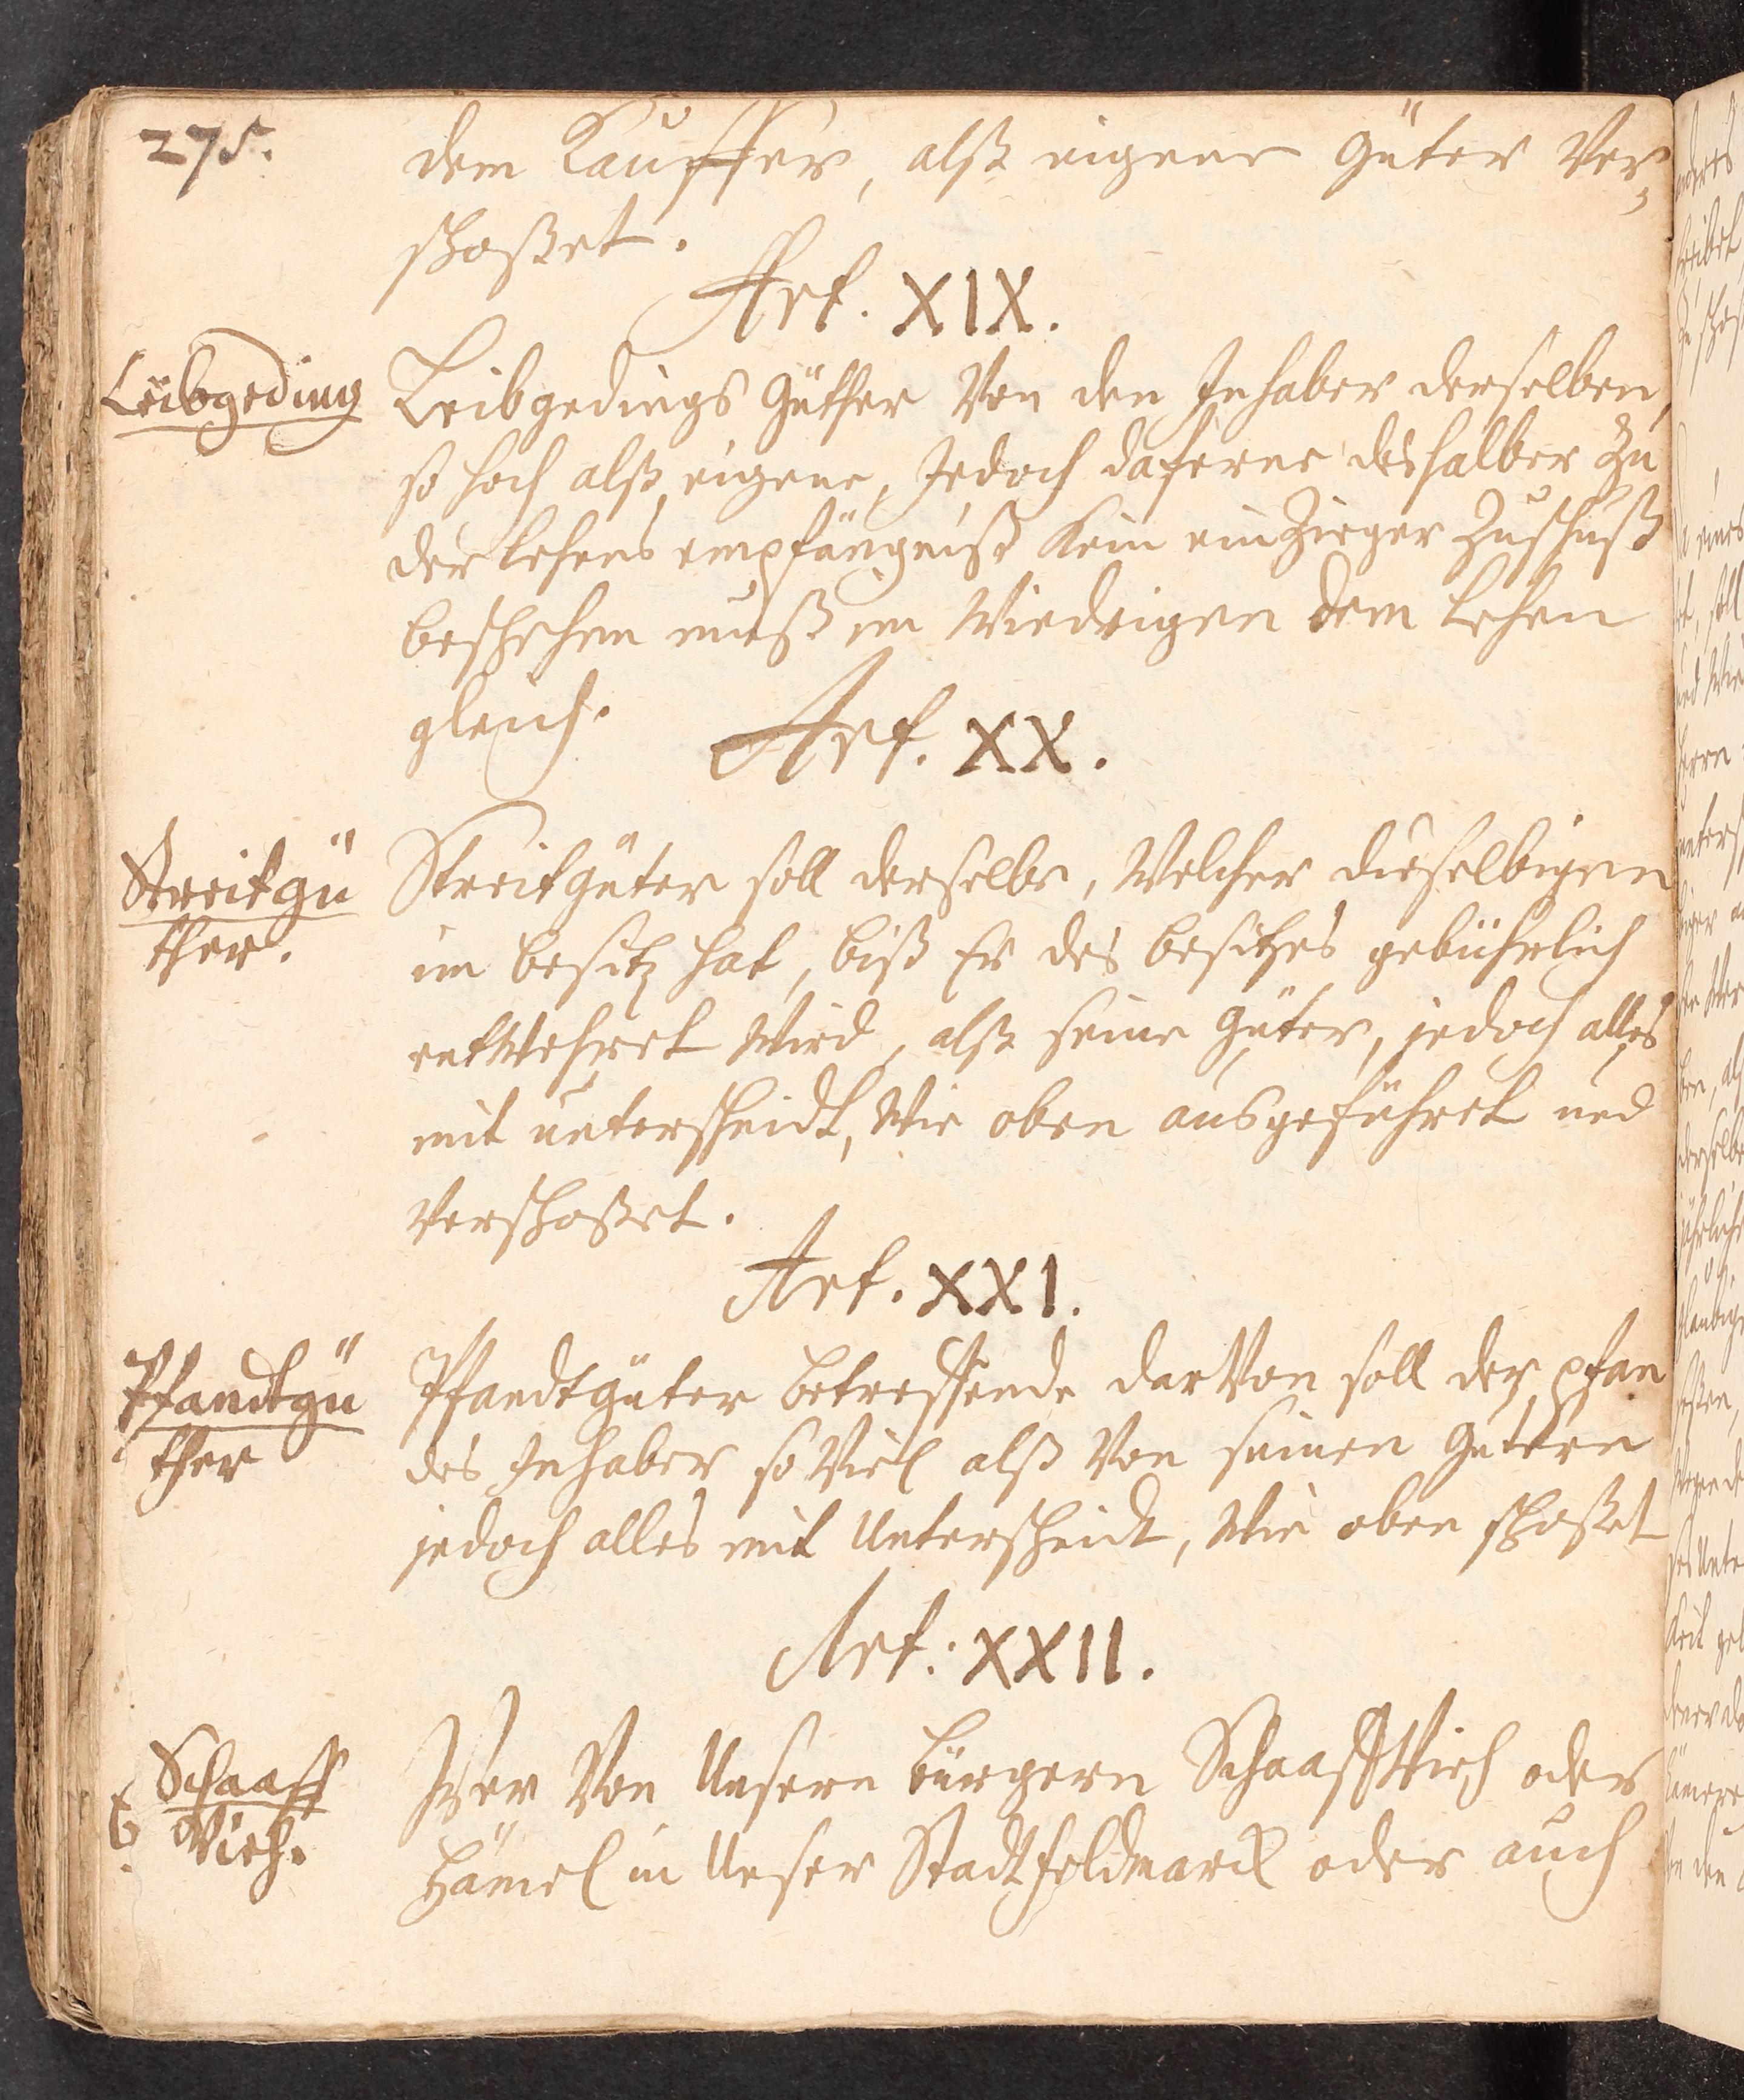 275.
dem Kauffer, alß eigene Güter Ver-
schoßet.
Art. XIX.
Leibgeding
Leibgedings Güther Von den Inhaber derselben,
so hoch alß eigene, Jedoch daferne deshalber Zu
der Lehens empfängniß Kein einZieger Zuschuß
beschehen muß im Wiedrigen dem Lehen
gleich.
Art. XX.
Streitgü
ther.
Streitgüter soll derselbe, Welcher dieselbigen
im besitz hat, biß Er des besitzes gebührlich
entWehret Wird, alß seine Güter, jedoch alles
mit unterscheidt, Wie oben ausgeführet und
Verschoßet.
Art. XXI.
Pfandtgü
ther
Pfandtgüter betreffende darVon soll der pfan
des Inhaber so Viel alß Von seinen Gütern
jedoch alles mit Unterscheidt, Wie oben schoßet
Art: XXII.
Schaaff
Vieh.
Wer Von Unsern bürgern SchaaffVieh oder
Hämel in Unser Stadtfeldmarck oder auch